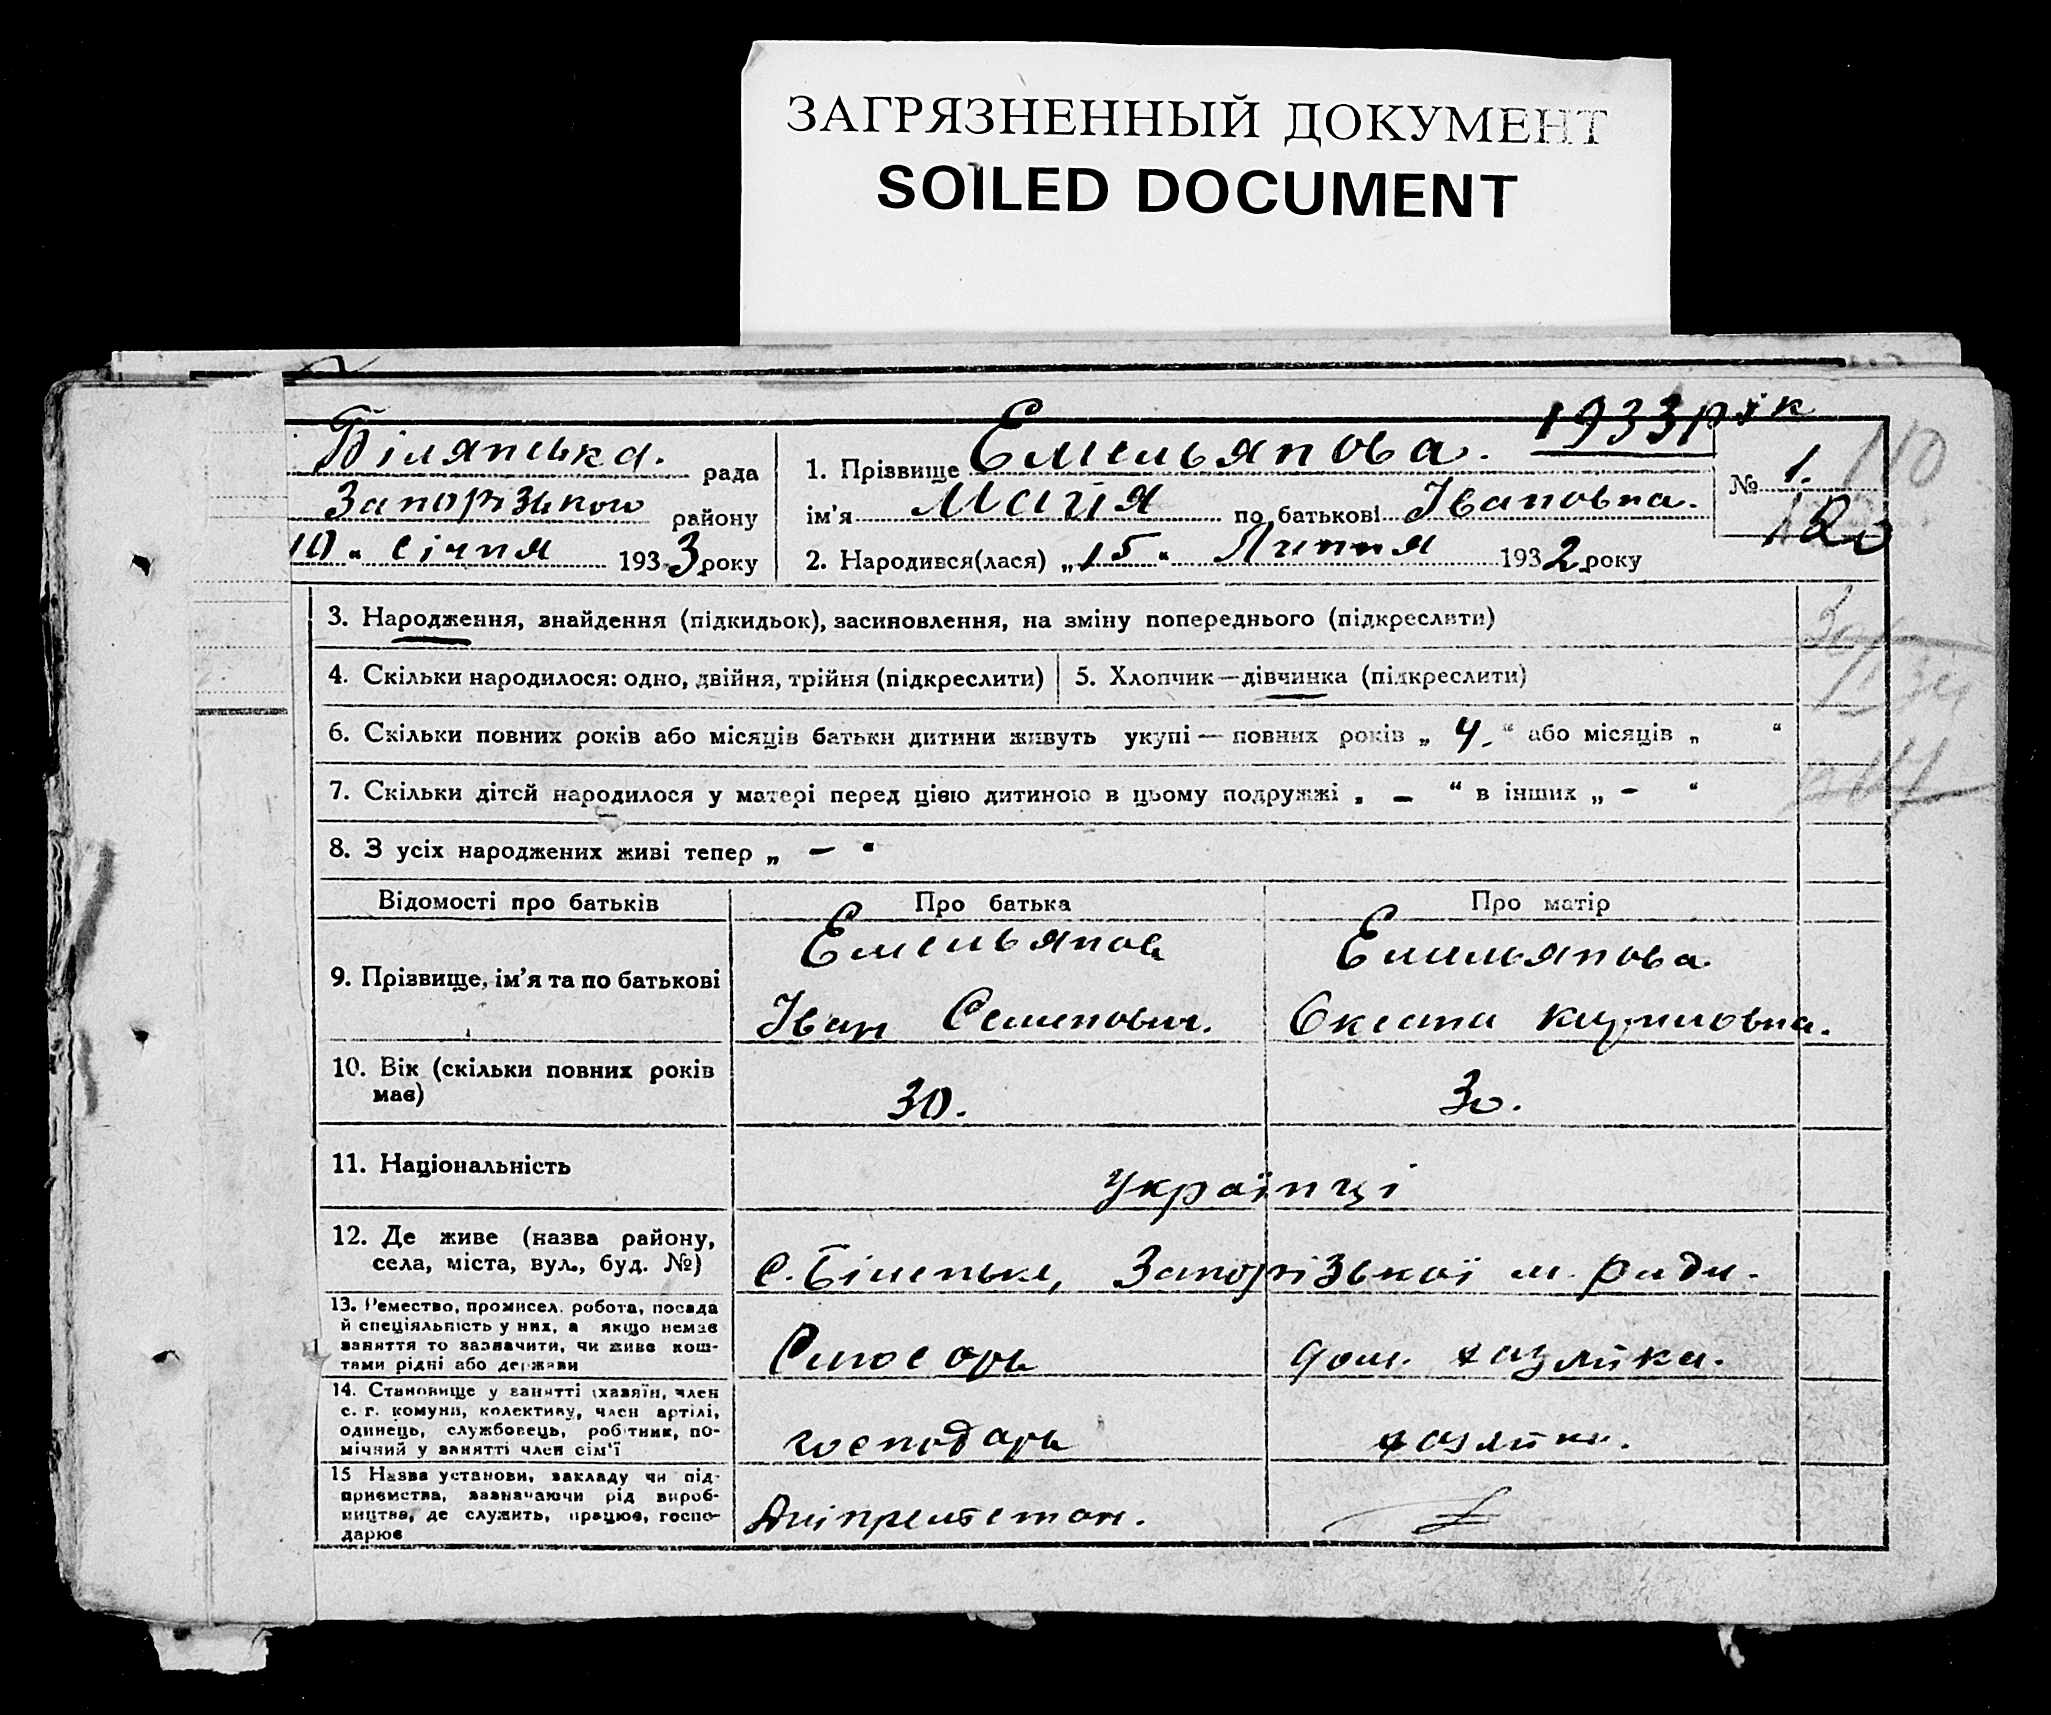 ЗАГРЯЗНЕННЫЙ ДОКУМЕНТ
SOILED DOCUMENT
1933 рік
Білянська. рада
Запорізького району
10 " січня 1933 року
1. Прізвище Емельянова.
ім'я Марія по батькові Івановна.
2. Народився(лася) „15" Липня 1932 року
№ 1.
110
120
3. Народження, знайдення (підкидьок), засиновлення, на зміну попереднього (підкреслити)
4. Скільки народилося: одно, двійня, трійня (підкреслити) 5. Хлопчик—дівчинка (підкреслити)
6. Скільки повних років або місяців батьки дитини живуть укупі — повних років „ 4. " або місяців „ "
7. Скільки дітей народилося у матері перед цією дитиною в цьому подружжі „ – " в інших „ – "
8. З усіх народжених живі тепер „ – "
Відомості про батьків Про батька Про матір
9. Прізвище, ім'я та по батькові
Емельянов
Іван Семенович.
Емельянова
Оксана Кузмиовна.
10. Вік (скільки повних років
має)
30. 30.
11. Національність
Українці
12. Де живе (назва району,
села, міста, вул., буд. №)
С. Біленьке, Запорізької м. ради.
13. Ремество, промисел, робота, посада
й спеціяльність у них, а якщо немає
заняття то зазначити, чи живе кош-
тами рідні або держави
Слюсарь дом. хазяйка.
14. Становище у занятті (хазяїн, член
с. г. комуни, колективу, член артілі,
одинець, службовець, робітник, по-
мічний у занятті член сім'ї
господарь хазяйка.
15 Назва установи, закладу чи під-
приємства, зазначаючи рід вироб-
ництва, де служить, працює, госпо-
дарює